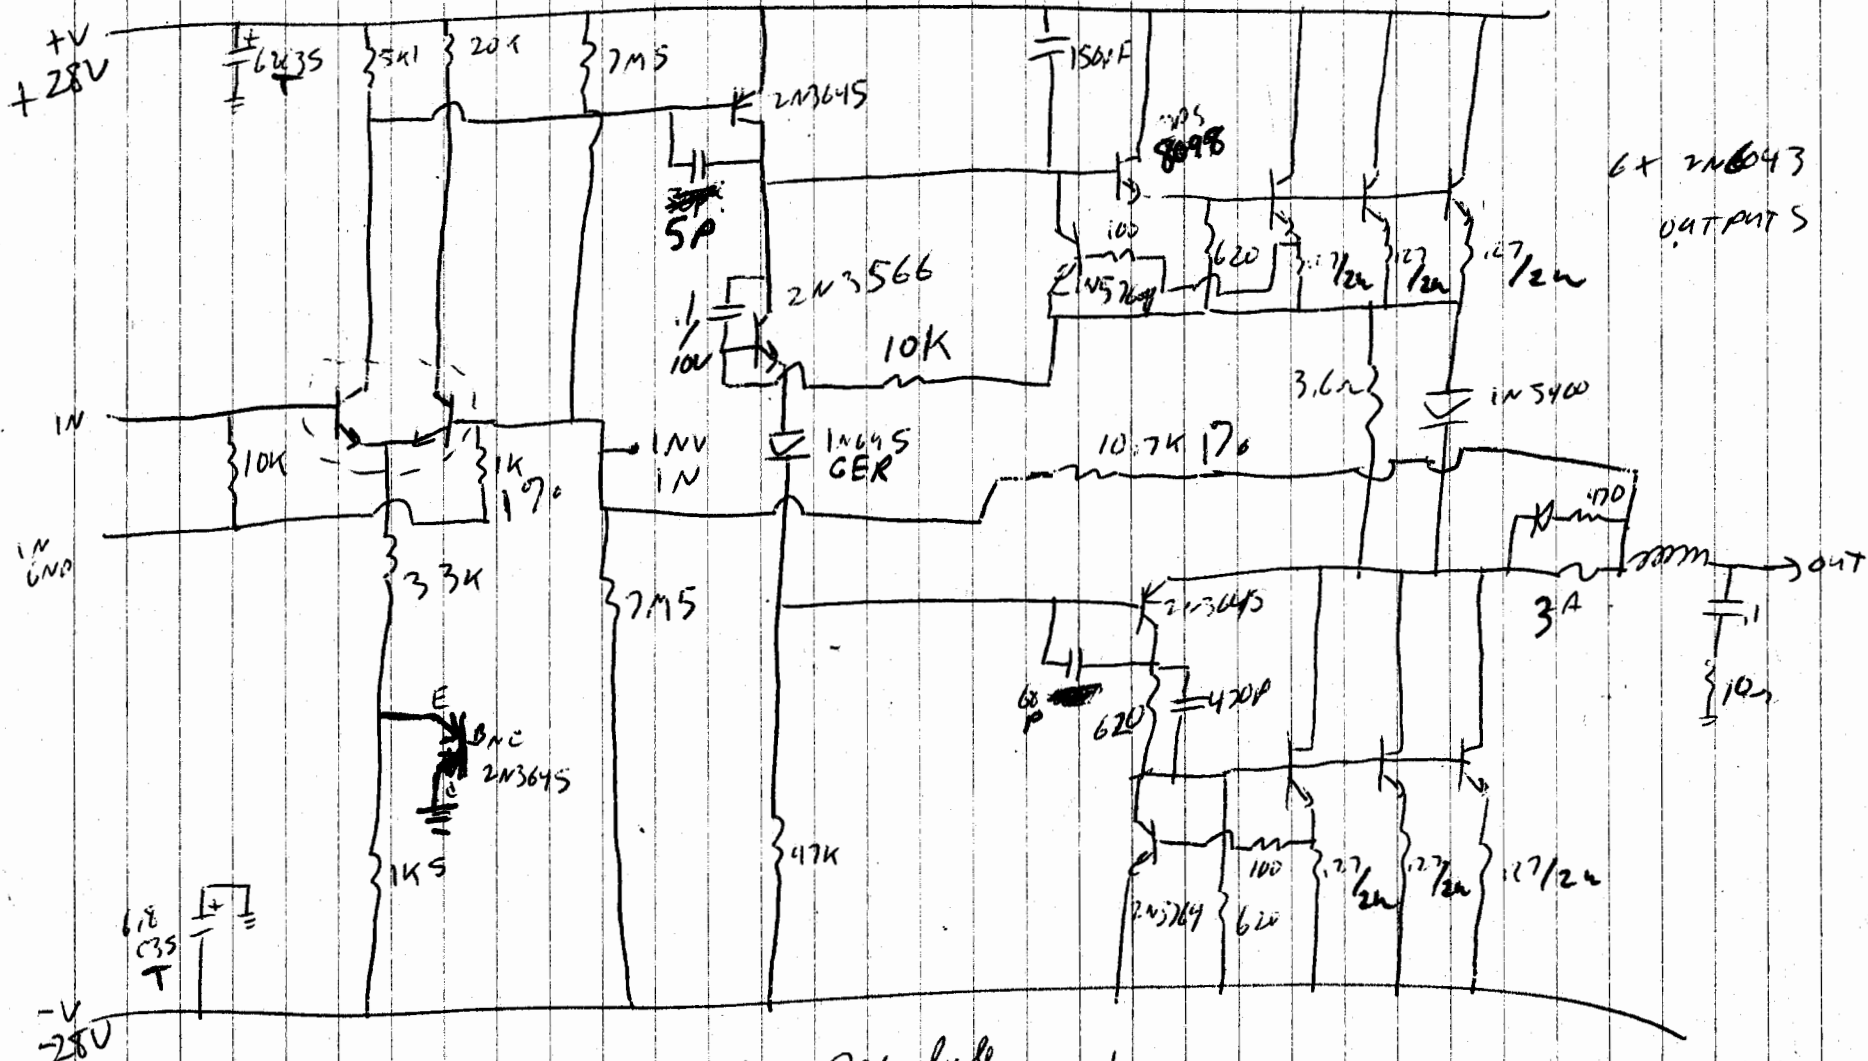 +V
+28V
5K1
20K
7M5
2N3645
150pF
MPS
8098
6x 2N6043
OUTPUTS
5P
2N3566
.1
10V
10K
100
620
.27/2W
.27/2W
.27/2W
3.6Ω
1N5400
IN
10K
1K
1%
INV
IN
1N645
GER
10.7K 1%
470
IN
GND
33K
7M5
2N3645
3A
OUT
.1
10Ω
68
P
620
470P
E
B NC
2N3645
C
47K
1K5
100
.27/2W
.27/2W
.27/2W
2N5764
620
6.8
C35
T
-V
-28V